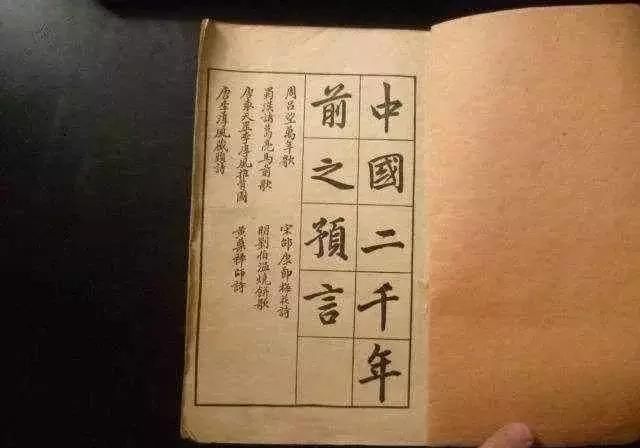 中國二千年
前之預言
周呂望萬年歌
蜀漢諸葛亮馬前歌
唐袁天罡李淳風推背圖
唐李淳風藏頭詩
宋邵康節梅花詩
明劉伯温燒餅歌
黃蘗禪師詩